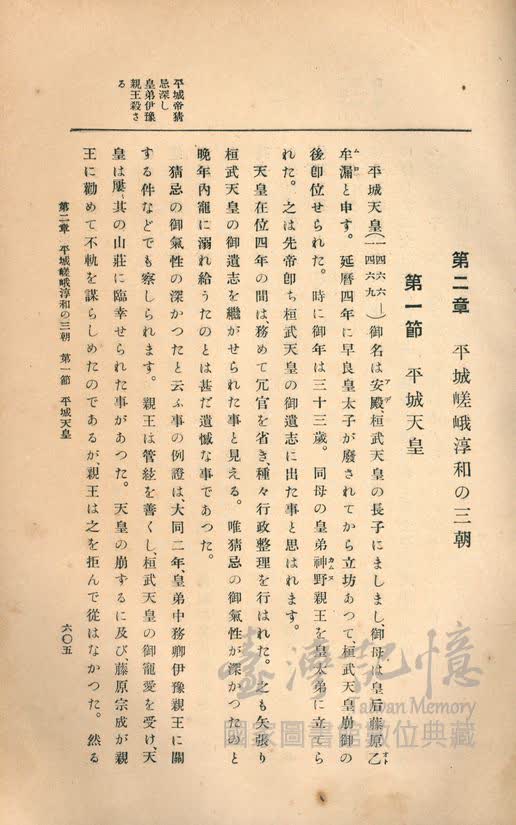 平城帝猜
忌深し
皇弟伊豫
親王殺さ
る
第二章　平城嵯峨淳和の三朝
第一節　平城天皇
平城天皇(一四六六—一四六九)御名は安殿桓武天皇の長子にましまし、御母は皇后藤原乙
牟漏と申す。延曆四年に早良皇太子が廢されてから立坊あつて、桓武天皇崩御の
後卽位せられた。時に御年は三十三歲。同母の皇弟神野親王を皇太弟に立てら
れた。之は先帝卽ち桓武天皇の御遺志に出た事と思はれます。
天皇在位四年の間は務めて冗官を省き、種々行政整理を行はれた。之も矢張り
桓武天皇の御遺志を繼がせられた事と見える。唯猜忌の御氣性が深かつたのと
晚年內寵に溺れ給うたのとは甚だ遺憾な事であつた。
猜忌の御氣性の深かつたと云ふ事の例證は、大同二年、皇弟中務卿伊豫親王に關
する件などでも察しられます。親王は管絃を善くし、桓武天皇の御寵愛を受け、天
皇は屢〻其の山莊に臨幸せられた事があつた。天皇の崩ずるに及び、藤原宗成が親
王に勸めて不軌を謀らしめたのであるが、親王は之を拒んで從はなかつた。然る
第二章　平城嵯峨淳和の三朝　第一節　平城天皇
六〇五
臺灣記憶
Taiwan Memory
國家圖書館數位典藏